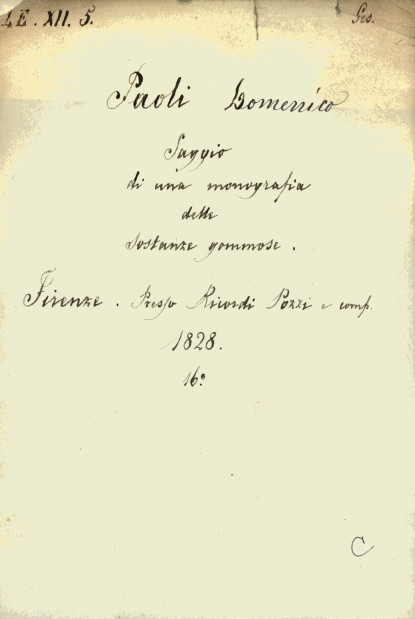 LE. XII. 5.
Ges.
Paoli Domenico
Saggio
di una monografia
delle
sostanze gommose.
Firenze. Presso Ricordi Pozzi e comp.
1828.
16º
C